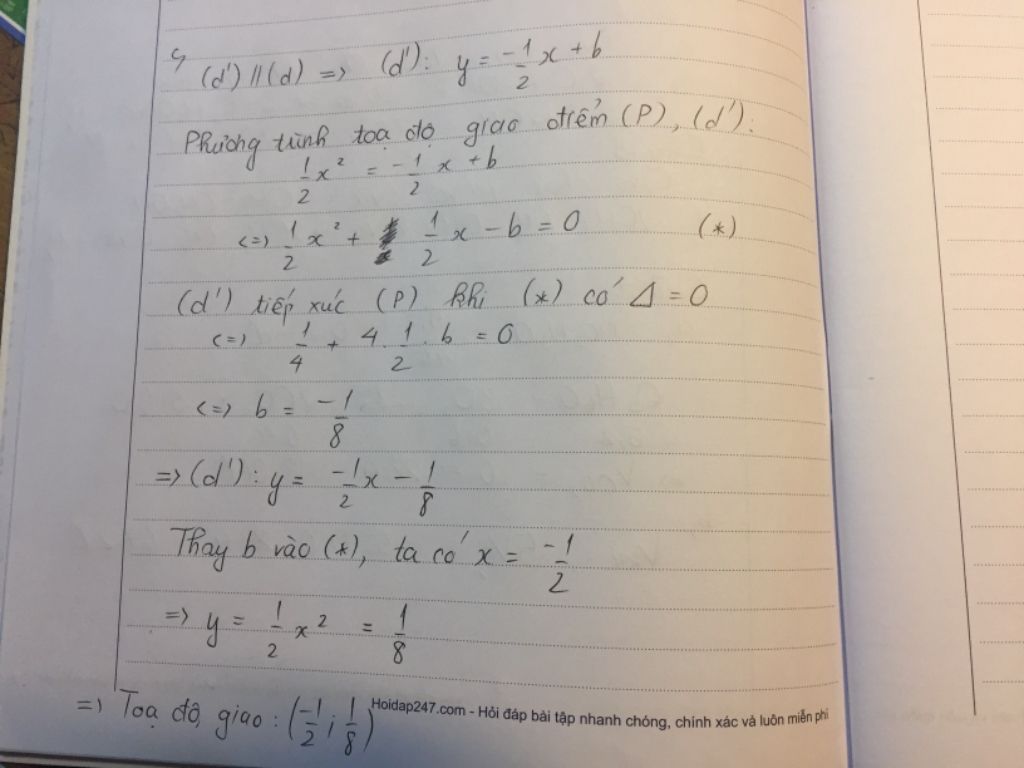 c, (d') // (d) => (d'): y = -1/2 x + b
Phương trình toạ độ giao điểm (P), (d'):
1/2 x² = -1/2 x + b
<=> 1/2 x² + 1/2 x - b = 0 (*)
(d') tiếp xúc (P) khi (*) có Δ = 0
<=> 1/4 + 4. 1/2 . b = 0
<=> b = -1/8
=> (d'): y = -1/2 x - 1/8
Thay b vào (*), ta có x = -1/2
=> y = 1/2 x² = 1/8
=> Toạ độ giao : (-1/2 ; 1/8)
Hoidap247.com - Hỏi đáp bài tập nhanh chóng, chính xác và luôn miễn phí